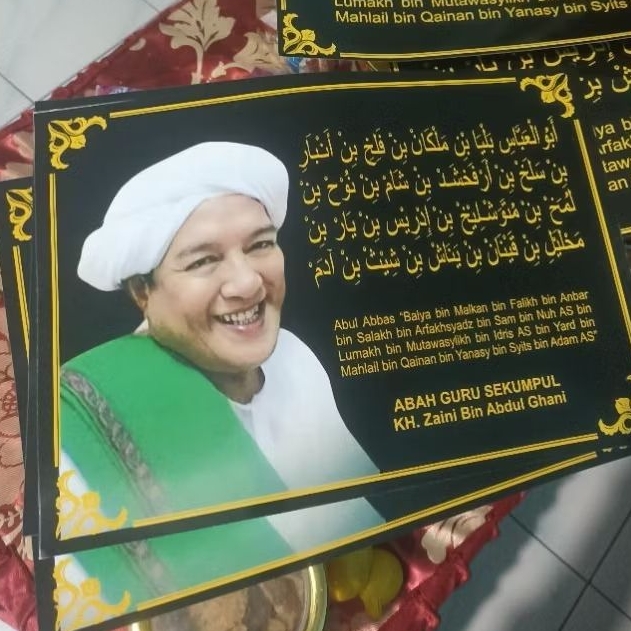 Lumakh bin Mutawasylikh
Mahlail bin Qainan bin Yanasy bin Syits
أَبُو الْعَبَّاسِ بَلْيَا بِنْ مَلْكَانْ بِنْ فَلَخْ بِنْ أَنْبَارِ
بِنْ سَلَخْ بِنْ أَرْفَخْشَذْ بِنْ شَامْ بِنْ نُوْحْ بِنْ
لُمَخْ بِنْ مُتَوَّشْلِيْخْ بِنْ إِدْرِيْسْ بِنْ يَارَدْ بِنْ
مَخْلَئِلْ بِنْ قَيْنَانْ بِنْ يَنَاشْ بِنْ شِيْثْ بِنْ آدَمْ
Abul Abbas "Balya bin Malkan bin Falikh bin Anbar
bin Salakh bin Arfakhsyadz bin Sam bin Nuh AS bin
Lumakh bin Mutawasylikh bin Idris AS bin Yard bin
Mahlail bin Qainan bin Yanasy bin Syits bin Adam AS"
ABAH GURU SEKUMPUL
KH. Zaini Bin Abdul Ghani